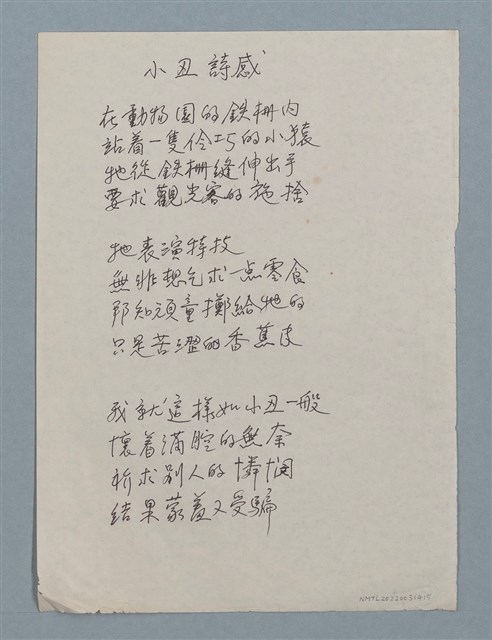 小丑詩感
在動物園的鉄柵内
站着一隻伶巧的小猿
牠從鉄柵縫伸出手
要求觀光客的施捨
牠表演特技
無非想乞求一点零食
那知頑童擲給牠的
只是苦澀的香蕉皮
我就這樣如小丑一般
懷着滿腔的無奈
祈求别人的憐憫
結果蒙羞又受騙